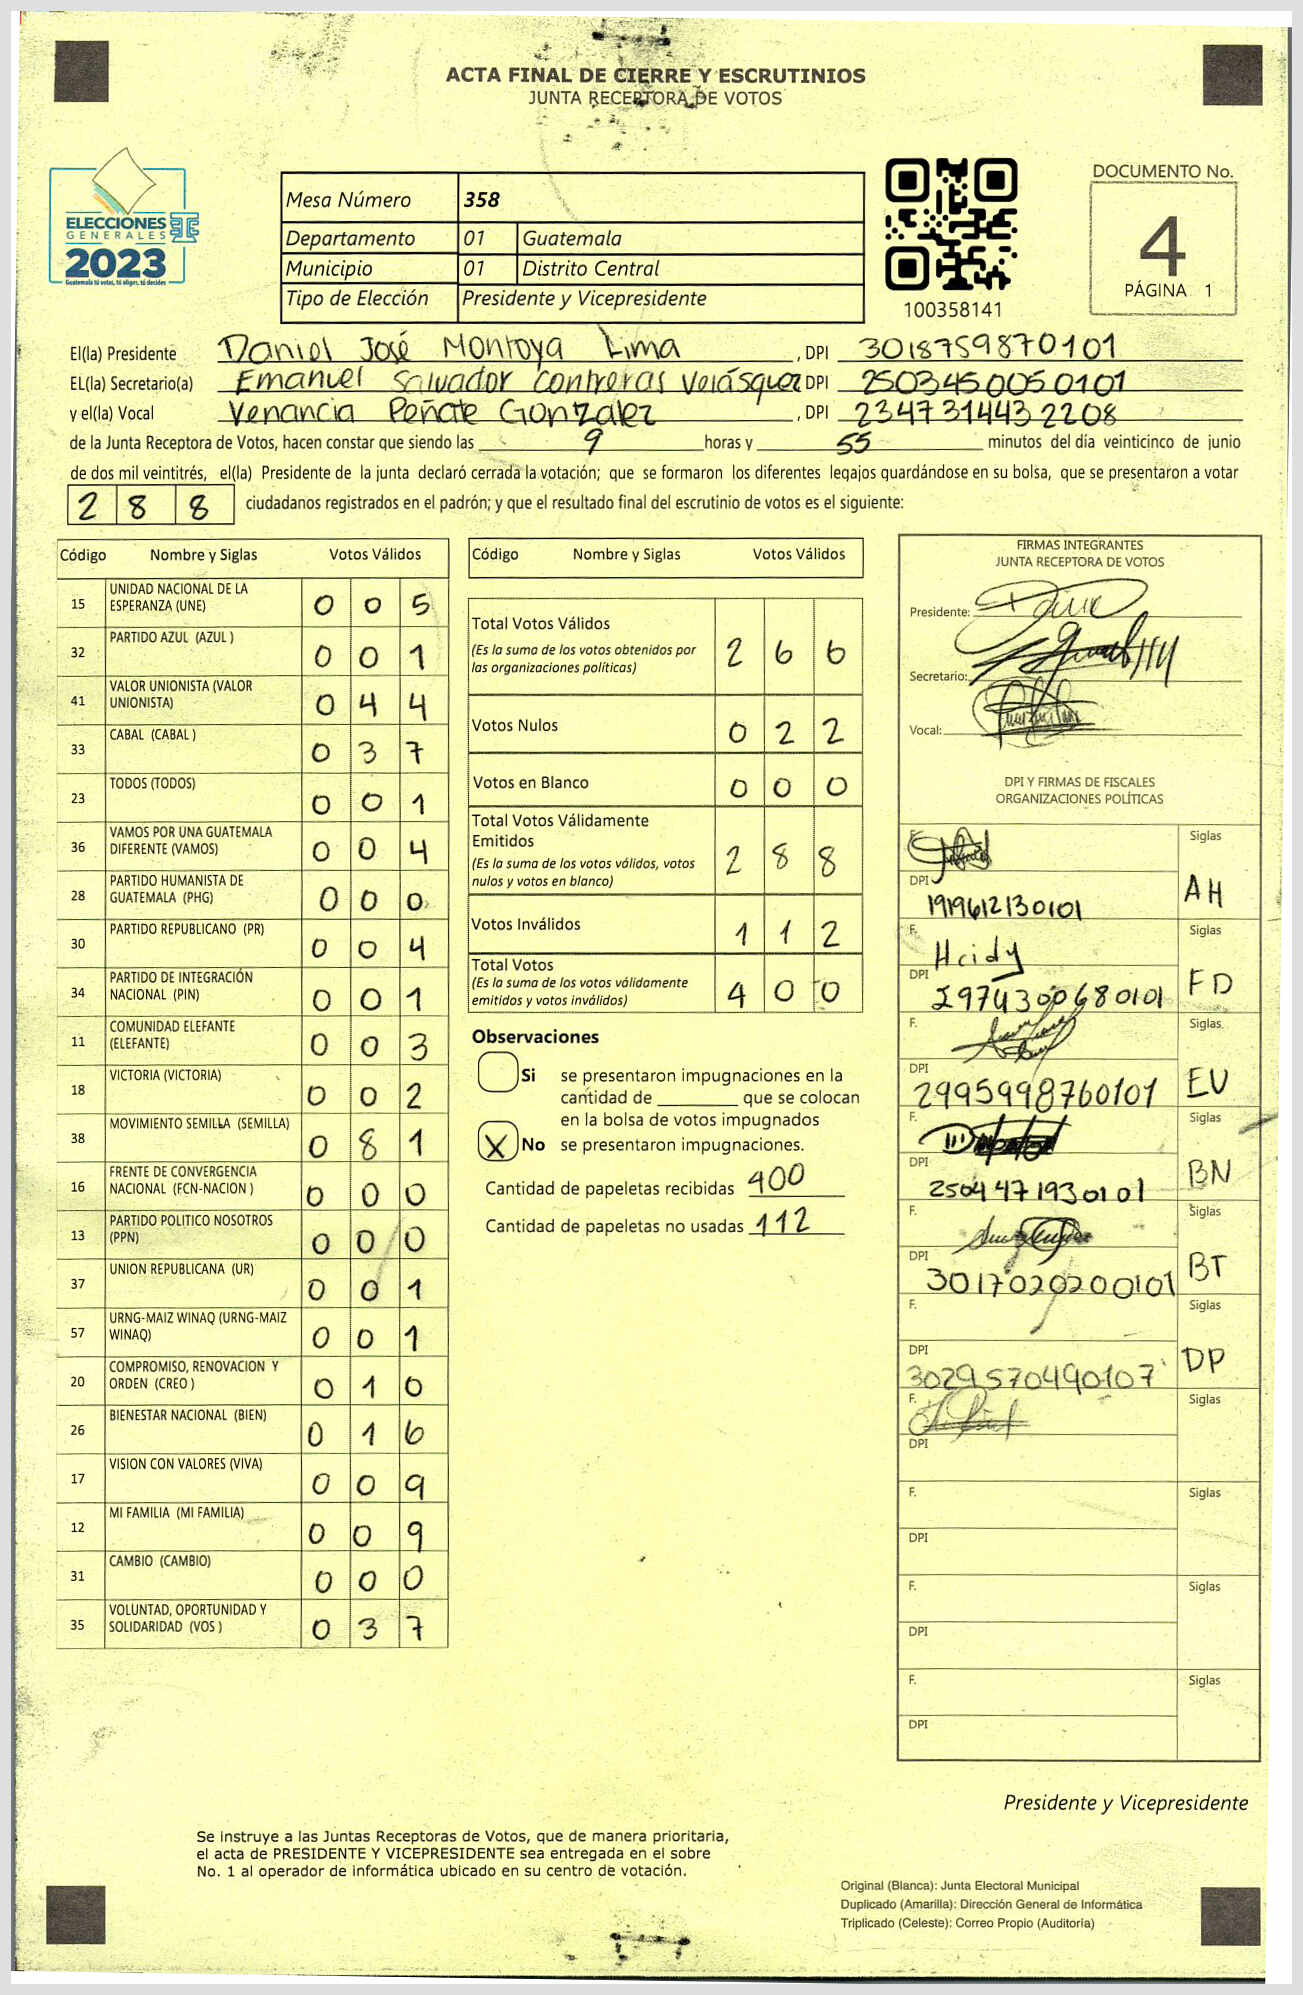 ACTA FINAL DE CIERRE Y ESCRUTINIOS
JUNTA RECEPTORA DE VOTOS
ELECCIONES
GENERALES
2023
Guatemala tú votas, tú eliges, tú decides
Mesa Número 358
Departamento 01 Guatemala
Municipio 01 Distrito Central
Tipo de Elección Presidente y Vicepresidente
100358141
DOCUMENTO No.
4
PÁGINA 1
El(la) Presidente Daniel José Montoya Lima, DPI 3018759870101
EL(la) Secretario(a) Emanuel Salvador Contreras Velásquez DPI 2503450050101
y el(la) Vocal Venancia Peñate Gonzalez, DPI 2347314432208
de la Junta Receptora de Votos, hacen constar que siendo las 9 horas y 55 minutos del día veinticinco de junio
de dos mil veintitrés, el(la) Presidente de la junta declaró cerrada la votación; que se formaron los diferentes legajos guardándose en su bolsa, que se presentaron a votar
288 ciudadanos registrados en el padrón; y que el resultado final del escrutinio de votos es el siguiente:
Código Nombre y Siglas Votos Válidos
15 UNIDAD NACIONAL DE LA ESPERANZA (UNE) 0 0 5
32 PARTIDO AZUL (AZUL ) 0 0 1
41 VALOR UNIONISTA (VALOR UNIONISTA) 0 4 4
33 CABAL (CABAL ) 0 3 7
23 TODOS (TODOS) 0 0 1
36 VAMOS POR UNA GUATEMALA DIFERENTE (VAMOS) 0 0 4
28 PARTIDO HUMANISTA DE GUATEMALA (PHG) 0 0 0
30 PARTIDO REPUBLICANO (PR) 0 0 4
34 PARTIDO DE INTEGRACIÓN NACIONAL (PIN) 0 0 1
11 COMUNIDAD ELEFANTE (ELEFANTE) 0 0 3
18 VICTORIA (VICTORIA) 0 0 2
38 MOVIMIENTO SEMILLA (SEMILLA) 0 8 1
16 FRENTE DE CONVERGENCIA NACIONAL (FCN-NACION ) 0 0 0
13 PARTIDO POLITICO NOSOTROS (PPN) 0 0 0
37 UNION REPUBLICANA (UR) 0 0 1
57 URNG-MAIZ WINAQ (URNG-MAIZ WINAQ) 0 0 1
20 COMPROMISO, RENOVACION Y ORDEN (CREO ) 0 1 0
26 BIENESTAR NACIONAL (BIEN) 0 1 6
17 VISION CON VALORES (VIVA) 0 0 9
12 MI FAMILIA (MI FAMILIA) 0 0 9
31 CAMBIO (CAMBIO) 0 0 0
35 VOLUNTAD, OPORTUNIDAD Y SOLIDARIDAD (VOS ) 0 3 7
Código Nombre y Siglas Votos Válidos
Total Votos Válidos 2 6 6
(Es la suma de los votos obtenidos por
las organizaciones políticas)
Votos Nulos 0 2 2
Votos en Blanco 0 0 0
Total Votos Válidamente
Emitidos 2 8 8
(Es la suma de los votos válidos, votos
nulos y votos en blanco)
Votos Inválidos 1 1 2
Total Votos 4 0 0
(Es la suma de los votos válidamente
emitidos y votos inválidos)
Observaciones
Si se presentaron impugnaciones en la
cantidad de ________ que se colocan
en la bolsa de votos impugnados
X No se presentaron impugnaciones.
Cantidad de papeletas recibidas 400
Cantidad de papeletas no usadas 112
FIRMAS INTEGRANTES
JUNTA RECEPTORA DE VOTOS
Presidente:
Secretario:
Vocal:
DPI Y FIRMAS DE FISCALES
ORGANIZACIONES POLÍTICAS
F. Siglas
DPI 1919612130101 AH
F. Heidy Siglas
DPI 2974300680101 FD
F. Siglas
DPI 2995998760101 EU
F. Siglas
DPI 2504471930101 BN
F. Siglas
DPI 3017020200101 BT
F. Siglas
DPI 3029570490107 DP
F. Siglas
DPI
F. Siglas
DPI
F. Siglas
DPI
F. Siglas
DPI
Presidente y Vicepresidente
Se instruye a las Juntas Receptoras de Votos, que de manera prioritaria,
el acta de PRESIDENTE Y VICEPRESIDENTE sea entregada en el sobre
No. 1 al operador de informática ubicado en su centro de votación.
Original (Blanca): Junta Electoral Municipal
Duplicado (Amarilla): Dirección General de Informática
Triplicado (Celeste): Correo Propio (Auditoría)